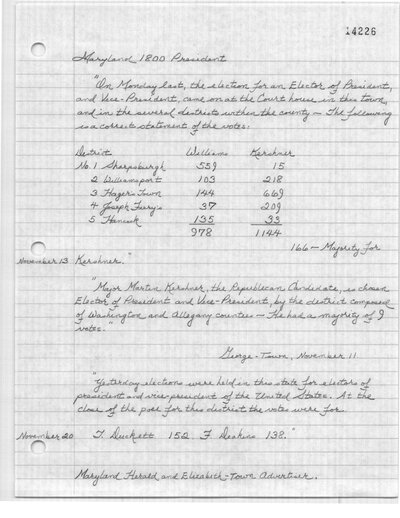 14226
Maryland 1800 President
"On Monday last, the election for an Elector of President,
and Vice-President, came on at the Court house in this town,
and in the several districts within the county — The following
is a correct statement of the votes:
District Williams Kershner
No. 1 Sharpsburgh 559 15
2 Williamsport 103 218
3 Hager's Town 144 669
4 Joseph Fiery's 37 209
5 Hancock 135 33
978 1144
166 — Majority for
November 13 Kershner."
"Major Martin Kershner, the Republican Candidate, is chosen
Elector of President and Vice-President, by the district composed
of Washington and Allegany counties — He had a majority of 9
votes."
George-Town, November 11
"Yesterday elections were held in this state for electors of
president and vice-president of the United States. At the
close of the poll for this district the votes were for
November 20 T Duckett 152 F Deakins 138."
Maryland Herald and Elizabeth-Town Advertiser.